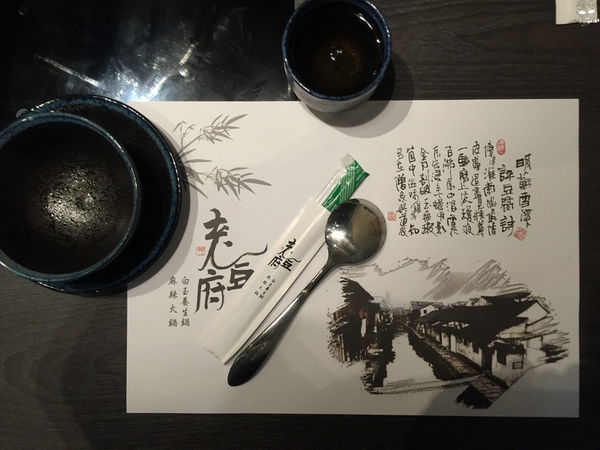 老豆府
白玉養生鍋
麻辣火鍋
老豆府
明蘇雪溪
詠豆腐詩
傳得淮南術最佳
皮膚退盡見精華
一輪磨上流瓊液
百沸湯中滾雪花
瓦缶浸來蟾有影
金刀剖破玉無瑕
箇中滋味誰得知
多在僧家與道家